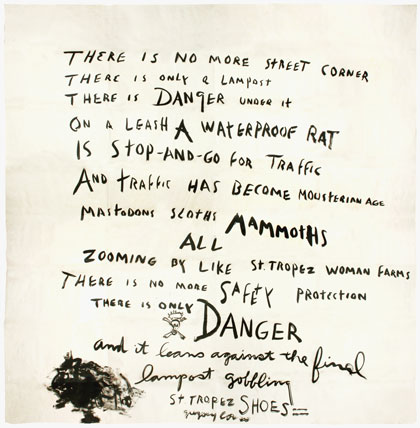 THERE IS NO MORE STREET CORNER
THERE IS ONLY A LAMPOST
THERE IS DANGER UNDER IT
ON A LEASH A WATERPROOF RAT
IS STOP-AND-GO FOR TRAFFIC
AND TRAFFIC HAS BECOME MOUSTERIAN AGE
MASTODONS SLOTHS MAMMOTHS
ALL
ZOOMING BY LIKE ST. TROPEZ WOMAN FARMS
THERE IS NO MORE SAFETY PROTECTION
THERE IS ONLY
DANGER
and it leans against the final
lampost gobbling
ST TROPEZ SHOES
gregory